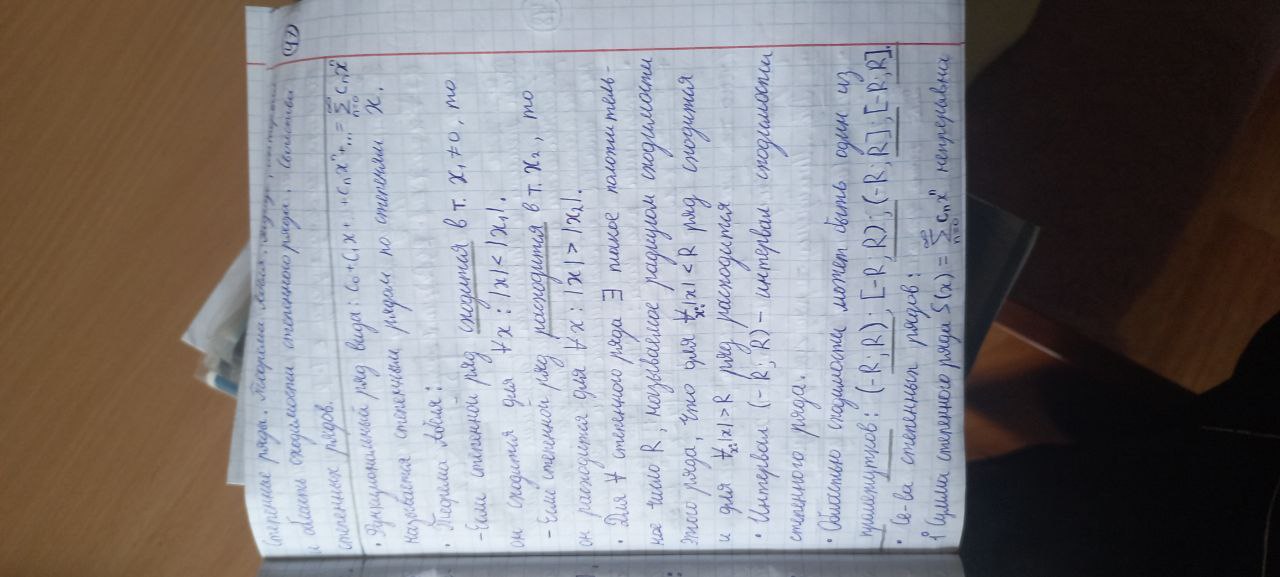 Степенные ряды. Теорема Абеля.
(42)
и область сходимости степенного ряда. Свойства
степенных рядов.
• Функциональный ряд вида: C₀+C₁x+...+Cₙxⁿ+...=∑ₙ₌₀^∞ Cₙxⁿ
называется степенным рядом по степеням x.
• Теорема Абеля:
- Если степенной ряд сходится в т. x₁≠0, то
он сходится для ∀x: |x|<|x₁|.
- Если степенной ряд расходится в т. x₂, то
он расходится для ∀x: |x|>|x₂|.
• Для ∀ степенного ряда ∃ такое положитель-
ное число R, называемое радиусом сходимости
этого ряда, что для ∀x: |x|<R ряд сходится
и для ∀x: |x|>R ряд расходится
• Интервал (-R; R) - интервал сходимости
степенного ряда.
• Областью сходимости может быть один из
промежутков: (-R;R); [-R;R); (-R;R]; [-R;R].
• Св-ва степенных рядов:
1° Сумма степенного ряда S(x)=∑ₙ₌₀^∞ Cₙxⁿ непрерывна